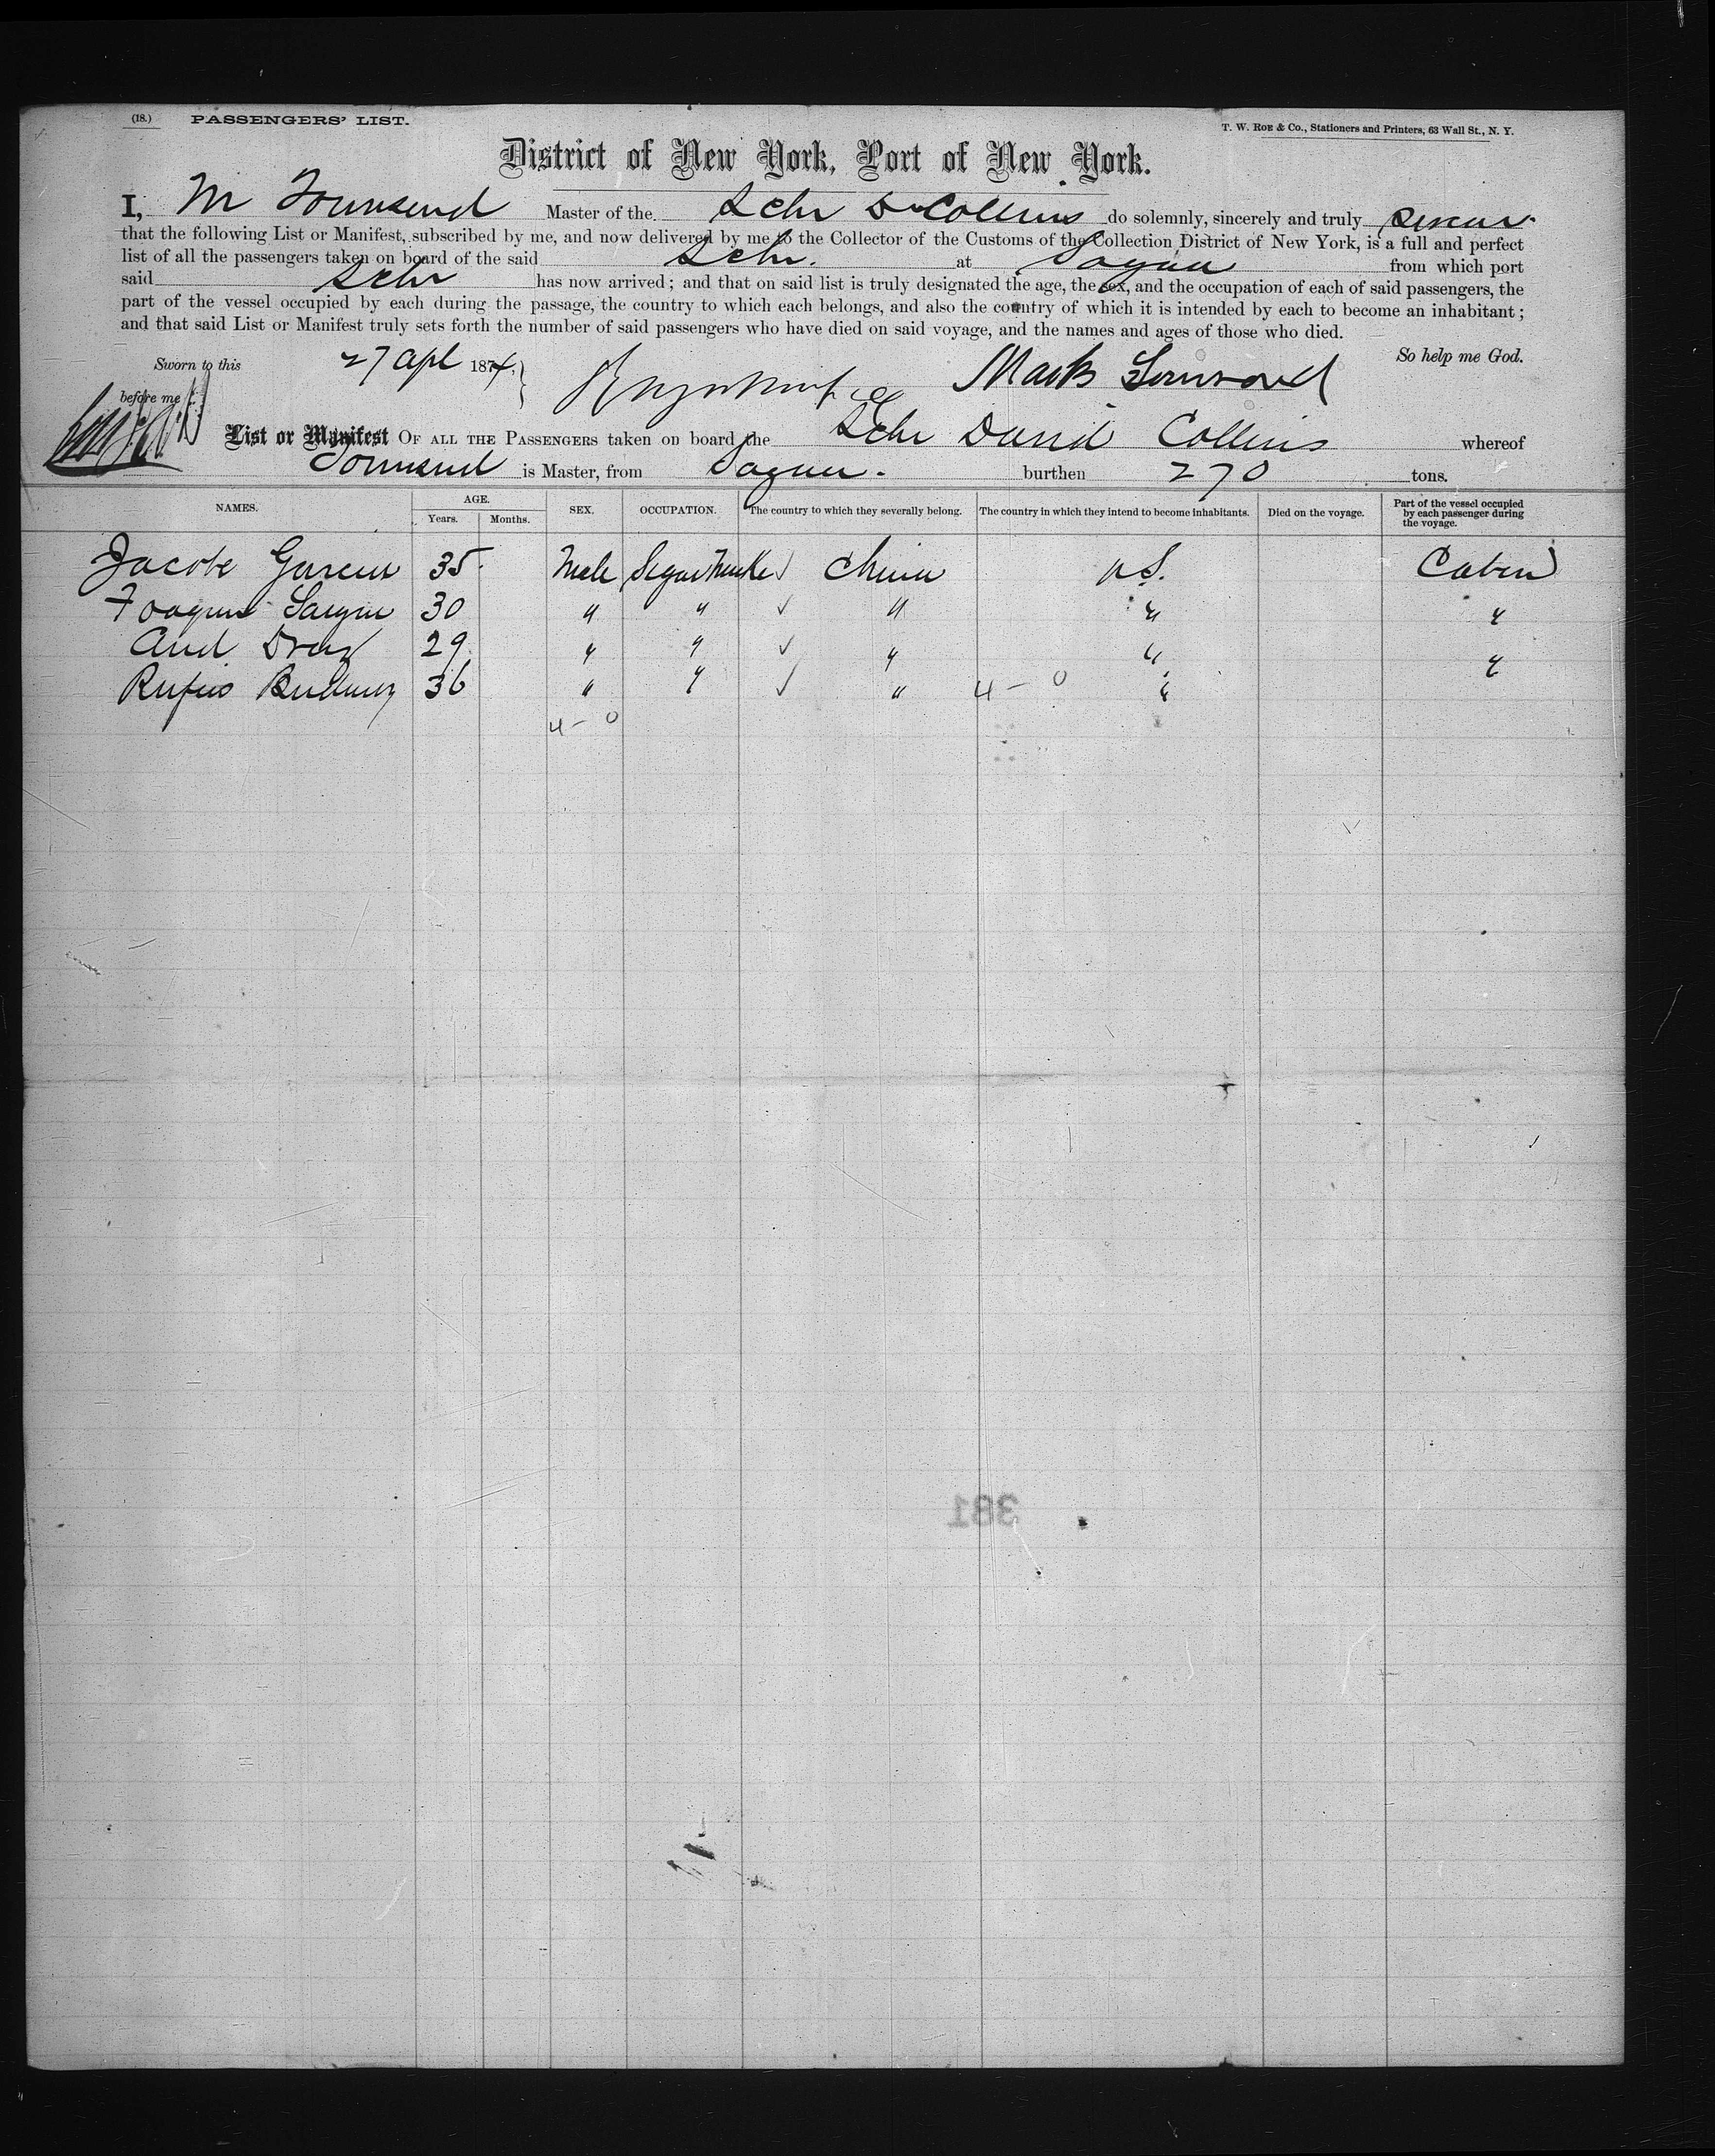 (18.) PASSENGERS' LIST.
T. W. ROE & CO., Stationers and Printers, 63 Wall St., N. Y.
District of New York, Port of New York.
I, M Townsend Master of the Schr D Collins do solemnly, sincerely and truly swear
that the following List or Manifest, subscribed by me, and now delivered by me to the Collector of the Customs of the Collection District of New York, is a full and perfect
list of all the passengers taken on board of the said Schr. at Sagua from which port
said Schr has now arrived; and that on said list is truly designated the age, the sex, and the occupation of each of said passengers, the
part of the vessel occupied by each during the passage, the country to which each belongs, and also the country of which it is intended by each to become an inhabitant;
and that said List or Manifest truly sets forth the number of said passengers who have died on said voyage, and the names and ages of those who died.
So help me God.
Sworn to this 27 Apl 1874, Mark Townsend
before me
List or Manifest OF ALL THE PASSENGERS taken on board the Schr David Collins whereof
Townsend is Master, from Sagua. burthen 270 tons.
NAMES. AGE. Years. Months. SEX. OCCUPATION. The country to which they severally belong. The country in which they intend to become inhabitants. Died on the voyage. Part of the vessel occupied by each passenger during the voyage.
Jacobe Garcia 35 Male Segar Maker ✓ China U.S. Cabin
Joaquin 30 " " ✓ " " "
And. Draz 29 " " ✓ " " "
Rufus 36 " " ✓ " 4 - 0 "
4 - 0
381